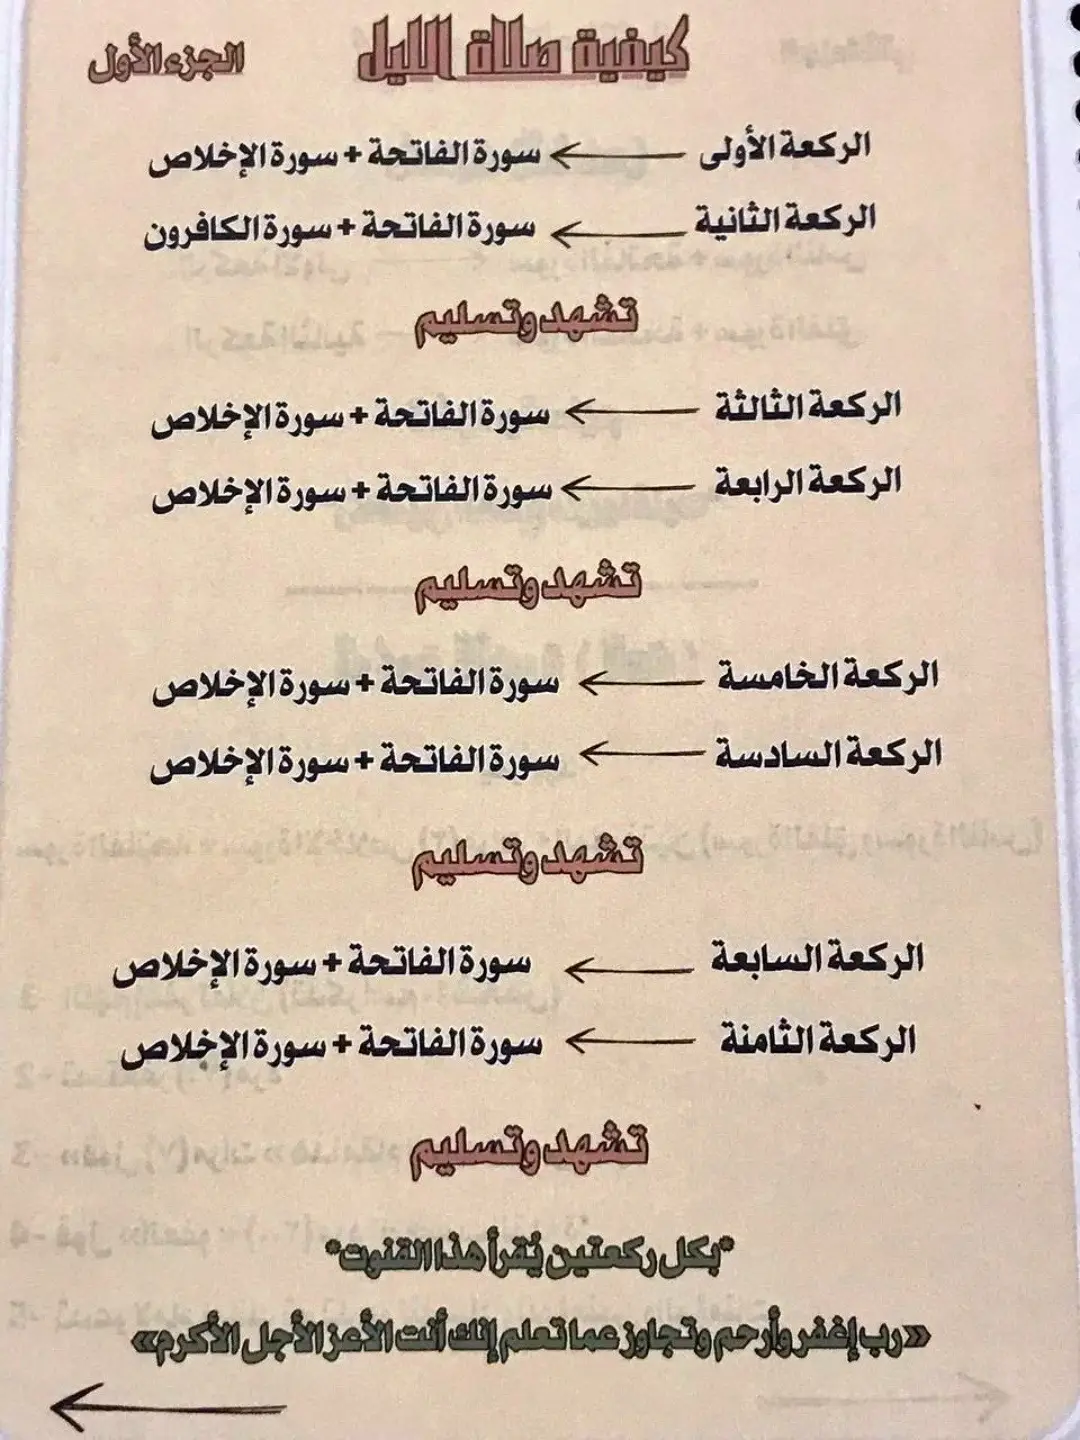 كيفية صلاة الليل
الجزء الأول
الركعة الأولى ← سورة الفاتحة + سورة الإخلاص
الركعة الثانية ← سورة الفاتحة + سورة الكافرون
تشهد وتسليم
الركعة الثالثة ← سورة الفاتحة + سورة الإخلاص
الركعة الرابعة ← سورة الفاتحة + سورة الإخلاص
تشهد وتسليم
الركعة الخامسة ← سورة الفاتحة + سورة الإخلاص
الركعة السادسة ← سورة الفاتحة + سورة الإخلاص
تشهد وتسليم
الركعة السابعة ← سورة الفاتحة + سورة الإخلاص
الركعة الثامنة ← سورة الفاتحة + سورة الإخلاص
تشهد وتسليم
*بكل ركعتين يُقرأ هذا القنوت*
«رب إغفر وأرحم وتجاوز عما تعلم إنك أنت الأعز الأجل الأكرم»